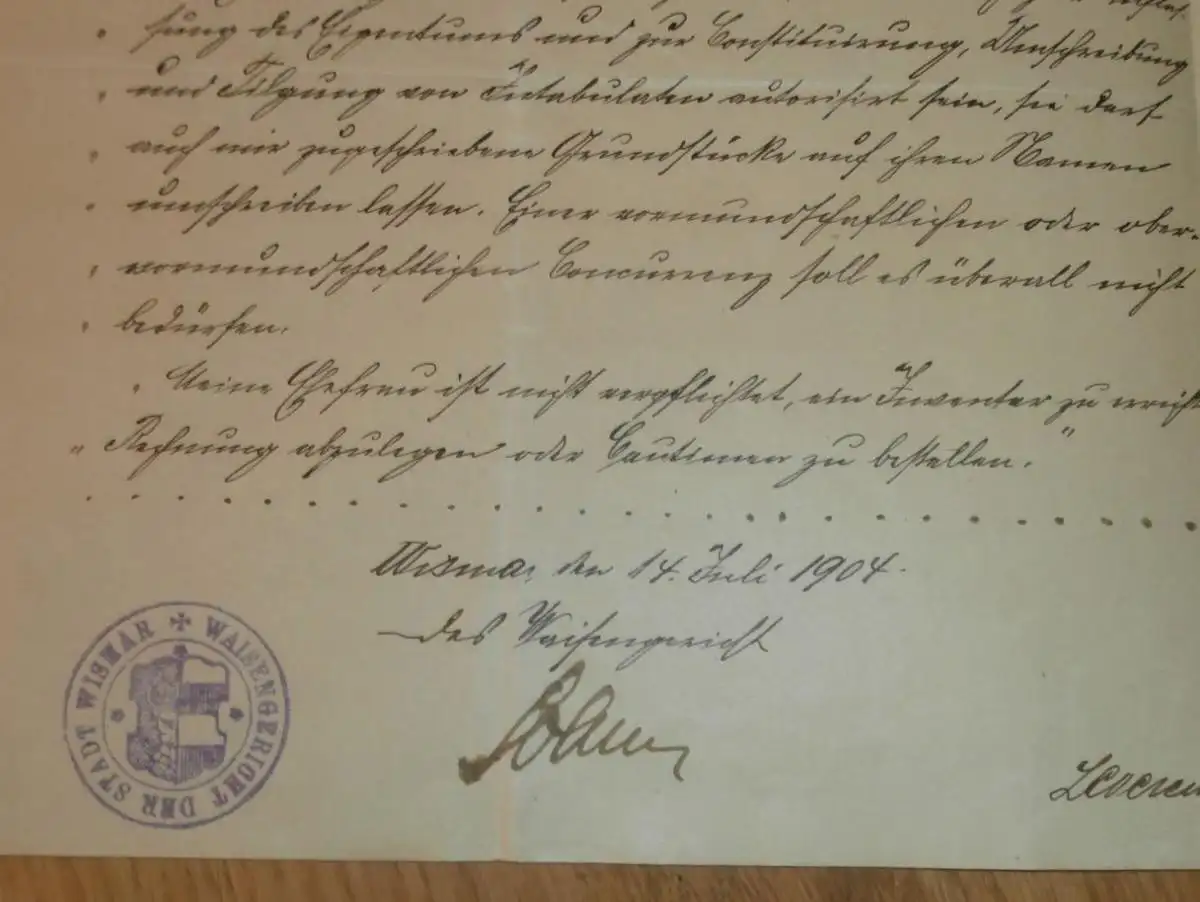 " sung des Eigentums und zur Constituirung, Umschreibung
" und Tilgung von Intabulaten autorisirt sein, sie darf
" auch mir zugeschriebene Grundstücke auf ihren Namen
" umschreiben lassen. Einer vormundschaftlichen oder ober-
" vormundschaftlichen Concurrenz soll es überall nicht
" bedürfen.
" Meine Ehefrau ist nicht verpflichtet, ein Inventar zu
" Rechnung abzulegen oder Cautionen zu bestellen. "
Wismar, den 14. Juli 1904.
Das Waisengericht
WAISENGERICHT DER STADT WISMAR